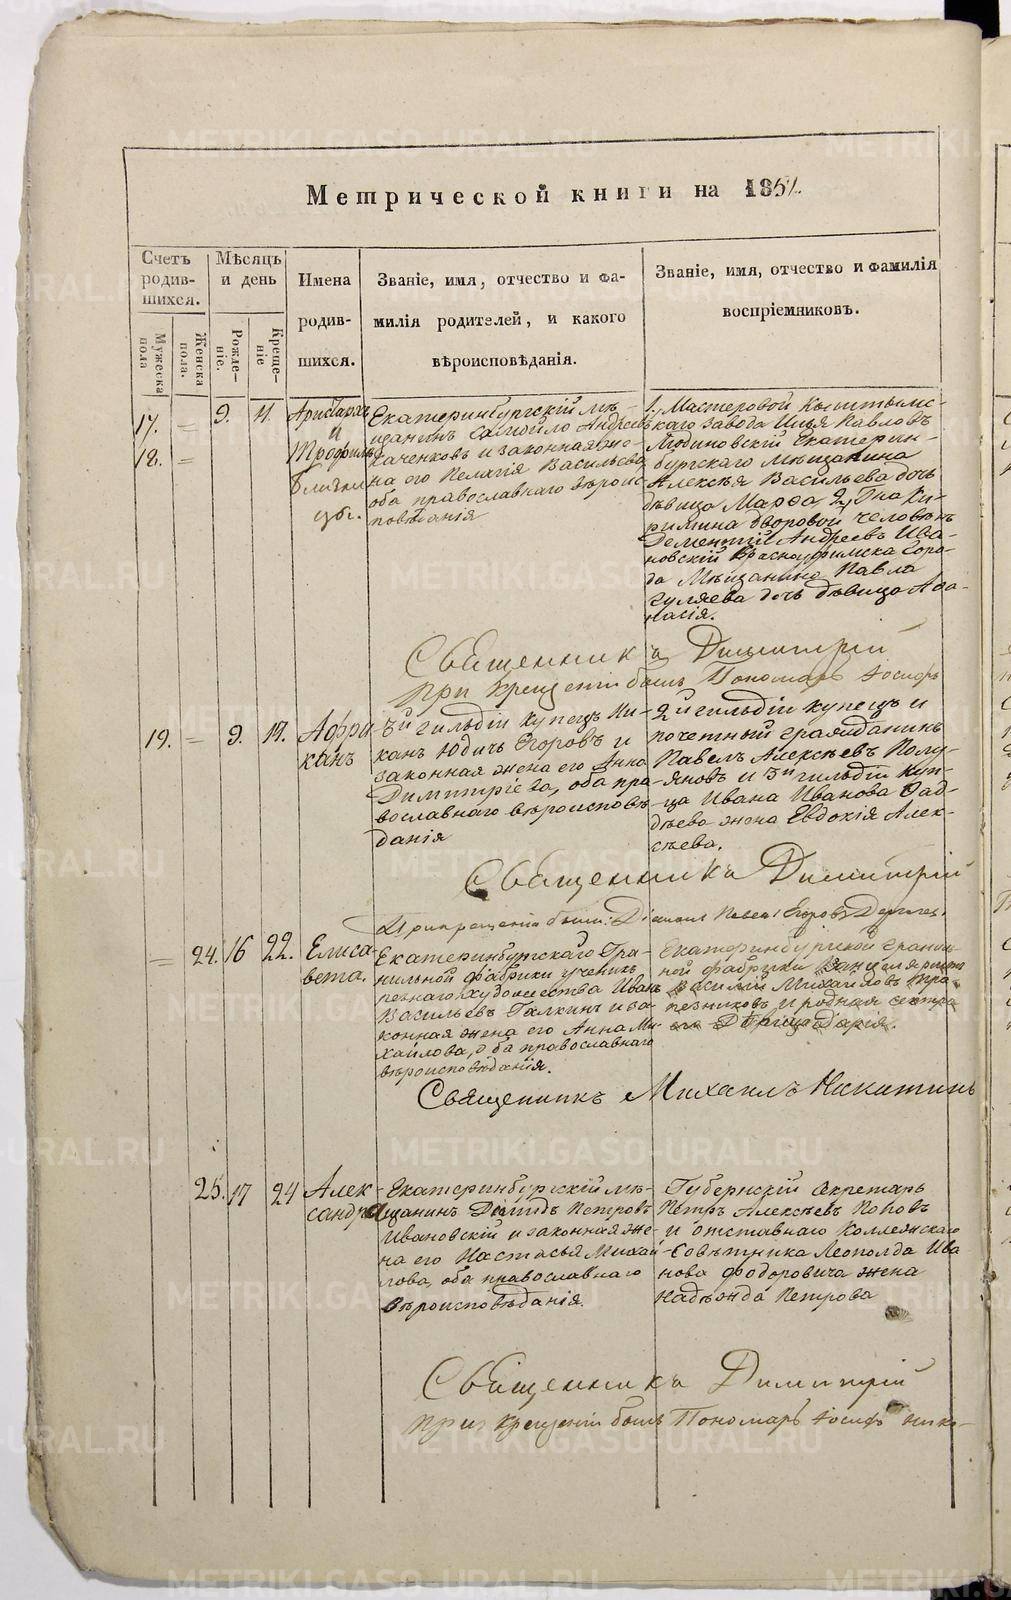 Метрической книги на 1852.
Счетъ родив-шихся.
Мѣсяцъ и день
Имена родив-шихся.
Званіе, имя, отчество и фа-
милія родителей, и какого
вѣроисповѣданія.
Званіе, имя, отчество и фамилія
воспріемниковъ.
Мужеска пола
Женска пола.
Рожде-ніе.
Креще-ніе
17. =
18. =
9. 11.
Аристархъ
и
Трофимъ
близне
цы.
Екатеринбургскій мѣ-
щанинъ Самойло Андреевъ
Каченковъ и законная же-
на его Пелагія Васильева
оба православнаго вѣроис
повѣданія
1, Мастеровой Кыштымс-
каго завода Илья Павловъ
Людиновскій Екатерин-
бургскаго Мѣщанина
Алексѣя Васильева дочь
дѣвица Марѳа 2,
дворовой человѣкъ
Дементій Андреевъ Ива-
новскій Красноуфимска Горо-
да Мѣщанина Павла
Гуляева дочь дѣвица Аѳа-
насія.
Священникъ Димитрій
при крещеніи былъ Пономарь Іосифъ
19. = 9. 17.
Афри
канъ
3й гильдіи купецъ Ни-
канъ Юдичъ Егоровъ и
законная жена его Анна
Димитріева, оба пра-
вославнаго вѣроисповѣ-
данія
2й гильдіи купецъ и
почетный гражданинъ
Павелъ Алексѣевъ Полу-
яновъ и 3й гильдіи куп-
ца Ивана Иванова Фад-
дѣева жена Евдокія Алек-
сѣева.
Священникъ Димитрій
При крещеніи былъ: Діаконъ Павелъ Егоровъ
= 24. 16 22.
Елиса-
вета.
Екатеринбургскаго Гра-
нильной фабрики ученикъ
рѣзнаго художества Иванъ
Васильевъ Галкинъ и за-
конная жена его Анна Ми-
хайлова, оба православнаго
вѣроисповѣданія.
Екатеринбургской гранил-
ной фабрики Канцеляристъ
Василій Михайловъ Тра-
пезниковъ и родная сестра
его Дѣвица Дарія.
Священникъ Михаилъ Никитинъ
25. 17 24
Алек-
сандра
Екатеринбургскій мѣ-
щанинъ Давидъ Петровъ
Ивановскій и законная же-
на его Настасья Михай-
лова, оба православнаго
вѣроисповѣданія.
Губернскій Секретарь
Петръ Алексѣевъ Поповъ
и отставнаго Коллежскаго
Совѣтника Леополда Ива
нова Фодоровича жена
Надѣжда Петрова
Священникъ Димитрій
при крещеніи былъ Пономарь Іосифъ Нико-
METRIKI.GASO-URAL.RU